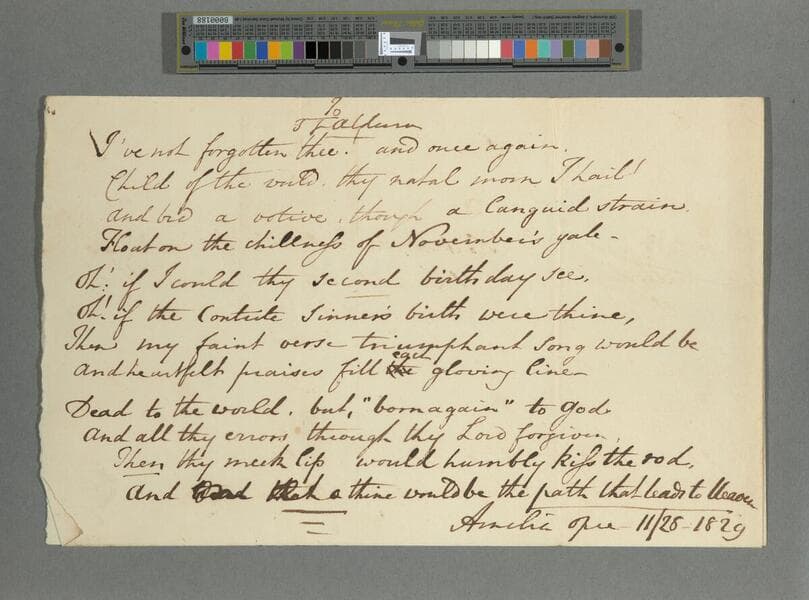 To
I've not forgotten thee! and once again,
Child of the world, thy natal morn I hail!
And bid a votive, though a languid strain
Float on the chillness of November's gale –
Oh! if I could thy second birthday see,
Oh! if the Contrite Sinner's birth were thine,
Then my faint verse triumphant song would be
And heartfelt praises fill each glowing line –
Dead to the world, but, "born again" to God
And all thy errors through thy Lord forgiven,
Then thy meek lip would humbly kiss the rod,
And thine would be the path that leads to Heaven
Amelia Opie 11/28 – 1829
B000188